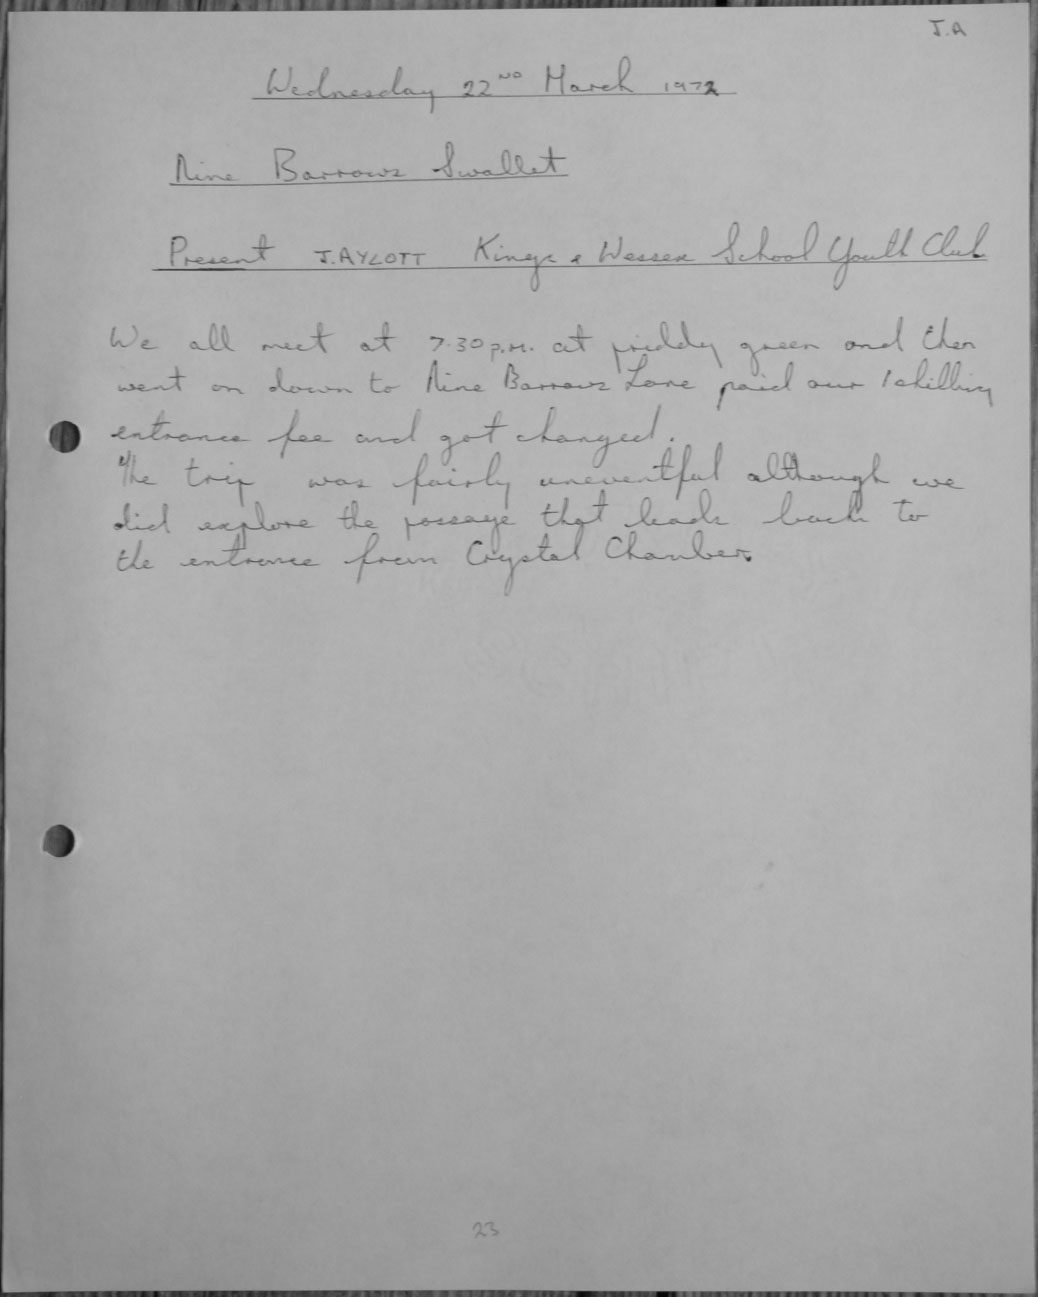 J.A
Wednesday 22ND March 1972
Nine Barrows Swallet
Present J. AYLOTT Kings & Wessex School Youth Club
We all meet at 7.30 p.m. at priddy green and then
went on down to Nine Barrows Lane paid our 1 shilling
entrance fee and got changed.
The trip was fairly uneventful although we
did explore the passage that leads back to
the entrance from Crystal Chamber.
23